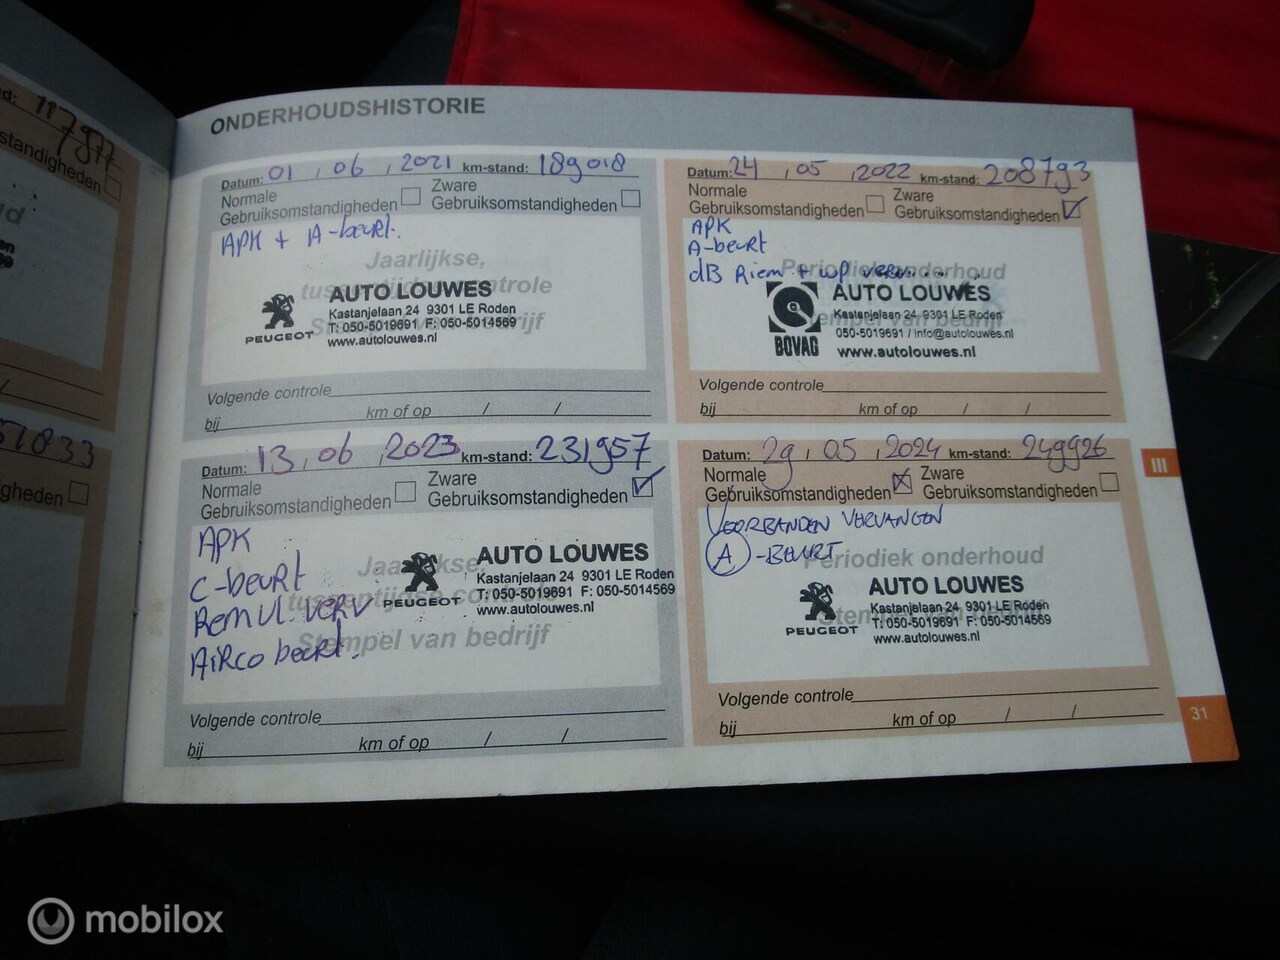 117977
ONDERHOUDSHISTORIE
Datum: 01 , 06 , 2021 km-stand: 189018
Normale Gebruiksomstandigheden
Zware Gebruiksomstandigheden
APK + A-beurt.
Jaarlijkse,
tussentijdse controle
Stempel van bedrijf
PEUGEOT
AUTO LOUWES
Kastanjelaan 24 9301 LE Roden
T: 050-5019691 F: 050-5014569
www.autolouwes.nl
Volgende controle
bij km of op / /
Datum: 24 , 05 , 2022 km-stand: 208793
Normale Gebruiksomstandigheden
Zware Gebruiksomstandigheden
APK
A-beurt
dB Riem + wp verv
Periodiek onderhoud
Stempel van bedrijf
BOVAG
AUTO LOUWES
Kastanjelaan 24 9301 LE Roden
050-5019691 / info@autolouwes.nl
www.autolouwes.nl
Volgende controle
bij km of op / /
51833
Datum: 13 , 06 , 2023 km-stand: 231957
Normale Gebruiksomstandigheden
Zware Gebruiksomstandigheden
APK
C-beurt
Remvl. verv
Airco beurt.
Jaarlijkse,
tussentijdse controle
Stempel van bedrijf
PEUGEOT
AUTO LOUWES
Kastanjelaan 24 9301 LE Roden
T: 050-5019691 F: 050-5014569
www.autolouwes.nl
Volgende controle
bij km of op / /
Datum: 29 , 05 , 2024 km-stand: 249926
Normale Gebruiksomstandigheden
Zware Gebruiksomstandigheden
VOORBANDEN VERVANGEN
A -BEURT
Periodiek onderhoud
Stempel van bedrijf
PEUGEOT
AUTO LOUWES
Kastanjelaan 24 9301 LE Roden
T: 050-5019691 F: 050-5014569
www.autolouwes.nl
Volgende controle
bij km of op / /
III
31
mobilox